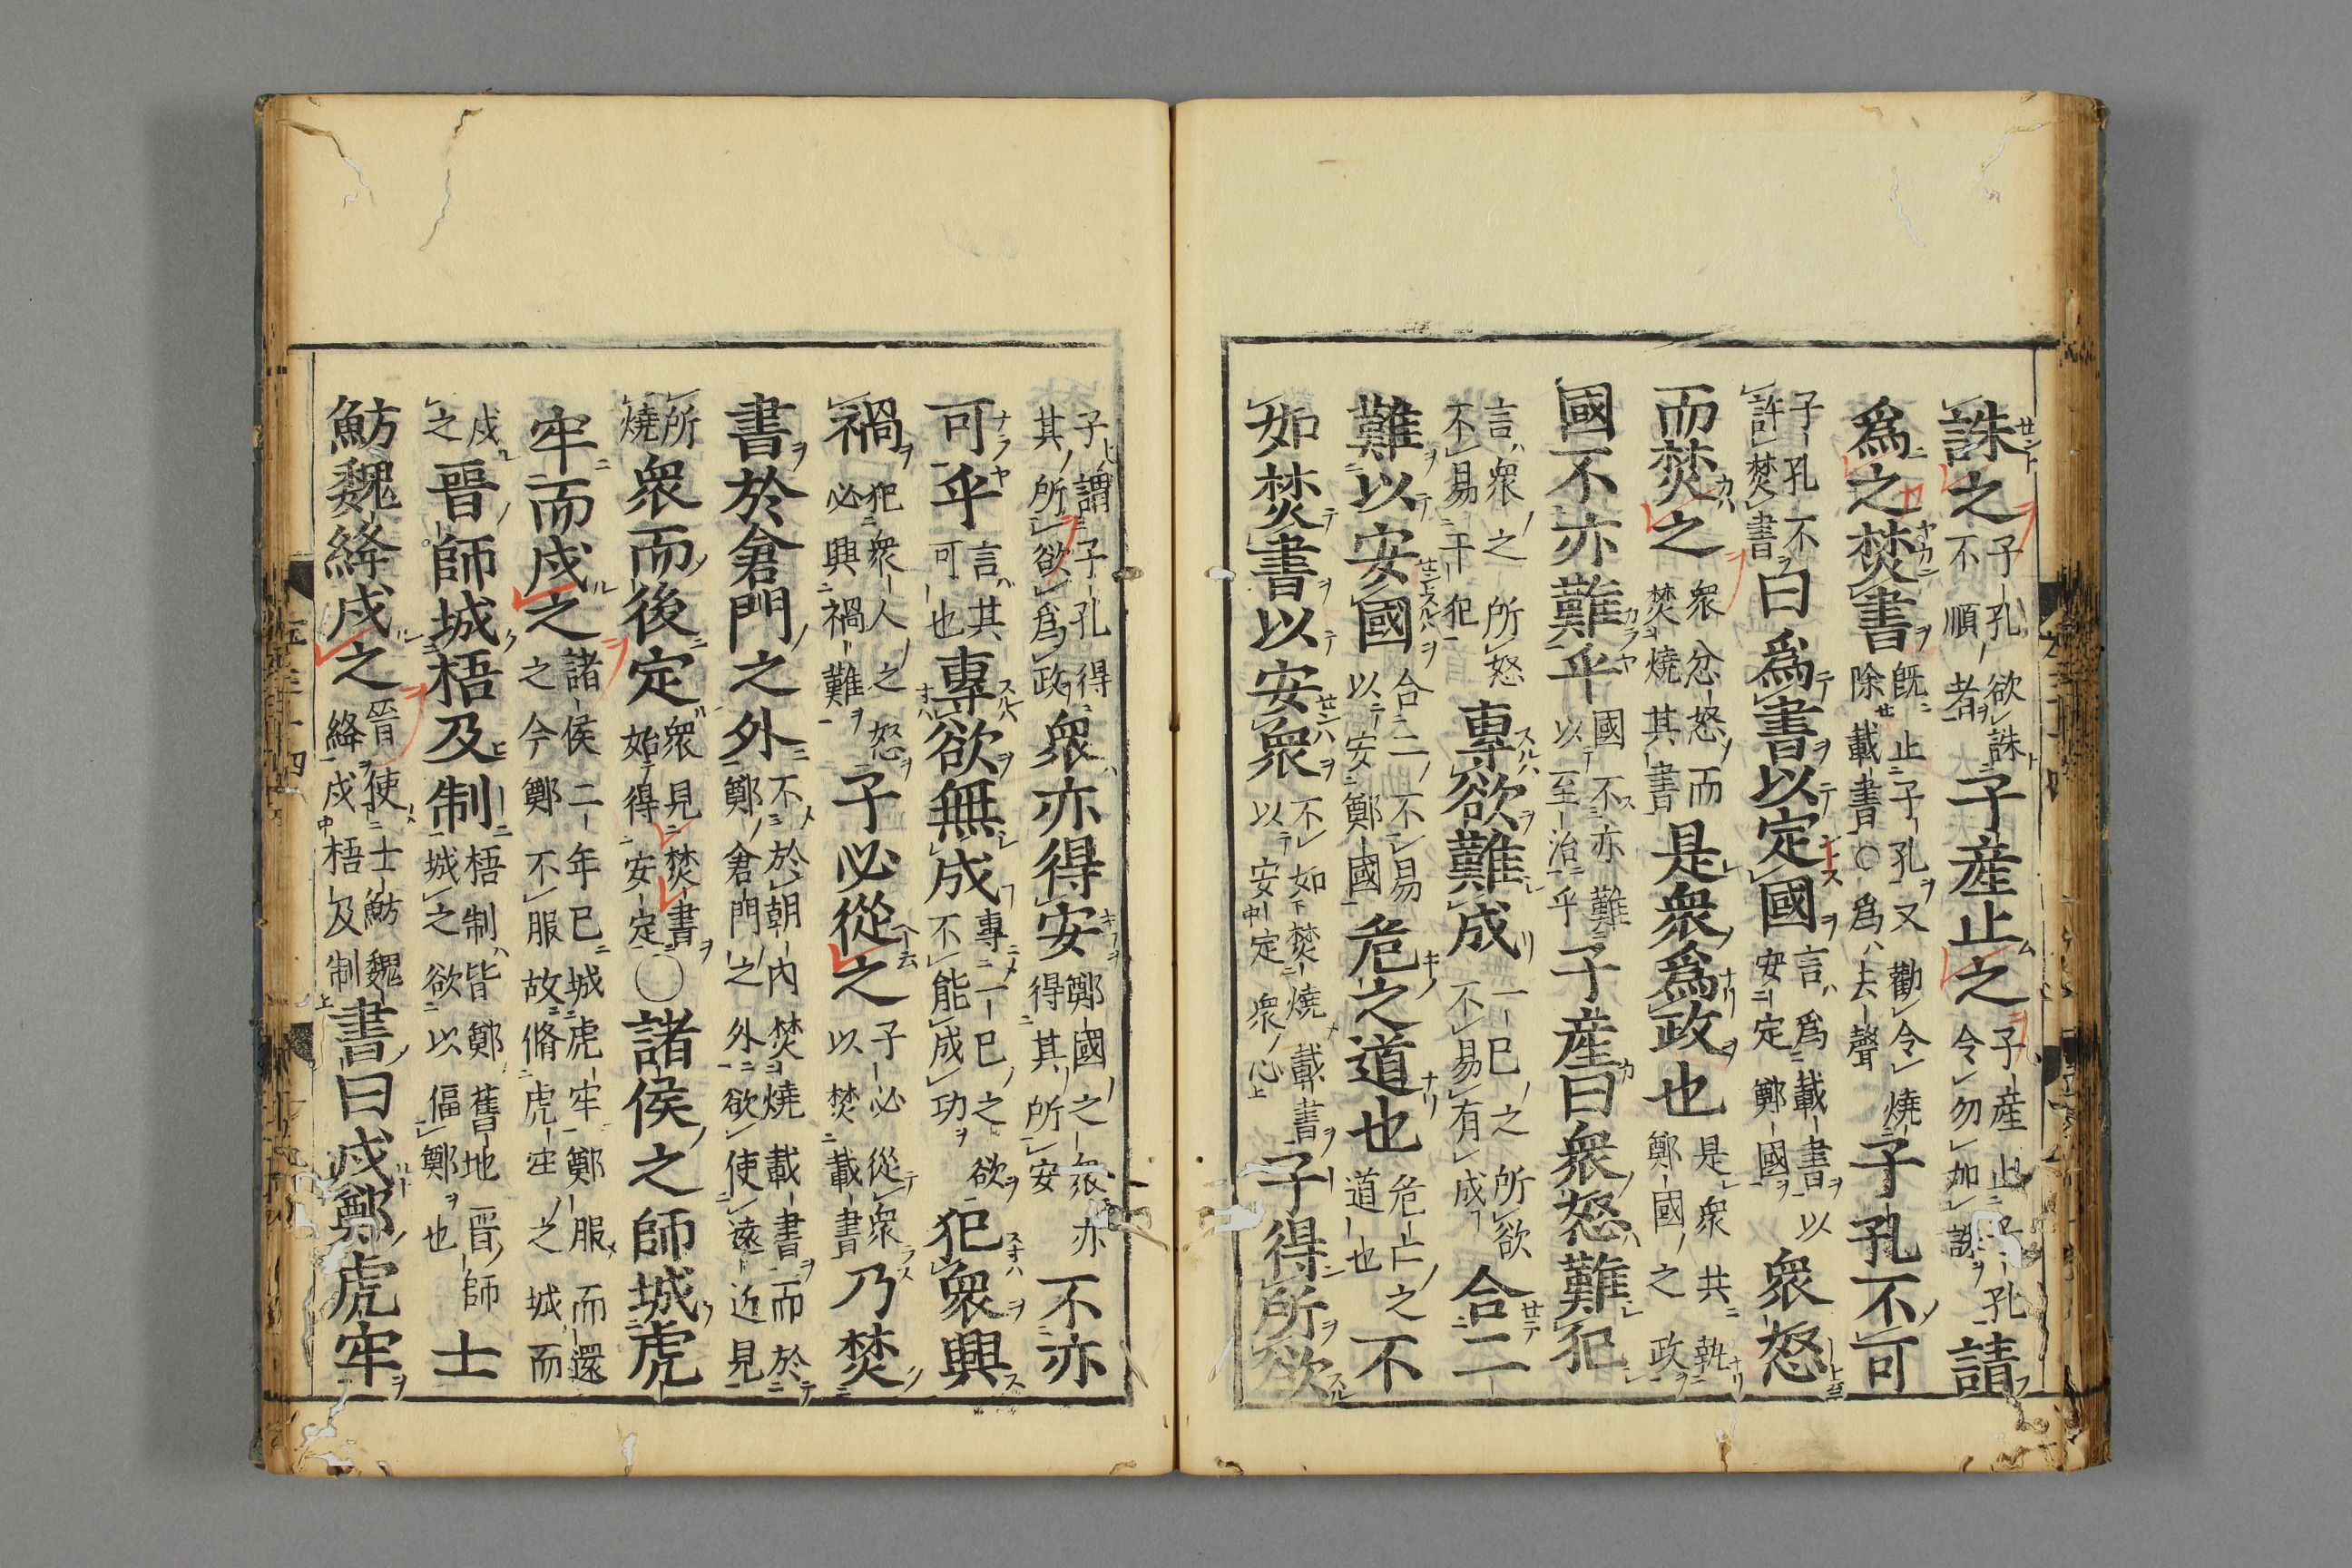 誅之子孔欲誅不順者子産止之子産止子孔令勿加誅請
爲之焚書既止子孔又勸令燒除載書○爲去聲子孔不可
子孔不許焚書曰爲書以定國言爲載書以安定鄭國衆怒
而焚之衆忿怒而焚燒其書是衆爲政也是衆共執鄭國之政
國不亦難乎國不亦難以至治乎子産曰衆怒難犯
言衆之所怒不易干犯專欲難成一己之所欲不易有成合二
難以安國合二不易以安鄭國危之道也危亡之道也不
如焚書以安衆不如焚燒載書以安定衆心子得所欲
子謂子孔得其所欲爲政衆亦得安鄭國之衆亦得其所安不亦
可乎言其可也專欲無成專一己之欲不能成功犯衆興
禍犯衆人之怒必興禍難子必從之子必從衆以焚載書乃焚
書於倉門之外不於朝内焚燒載書而於鄭倉門之外欲使遠近見
所燒衆而後定衆見焚書始得安定○諸侯之師城虎
牢而戍之諸侯二年已城虎牢鄭服而還之今鄭不服故脩虎牢之城而
戍之晉師城梧及制梧制皆鄭舊地晉師城之欲以偪鄭也士
魴魏絳戍之晉使士魴魏絳戍梧及制書曰戍鄭虎牢